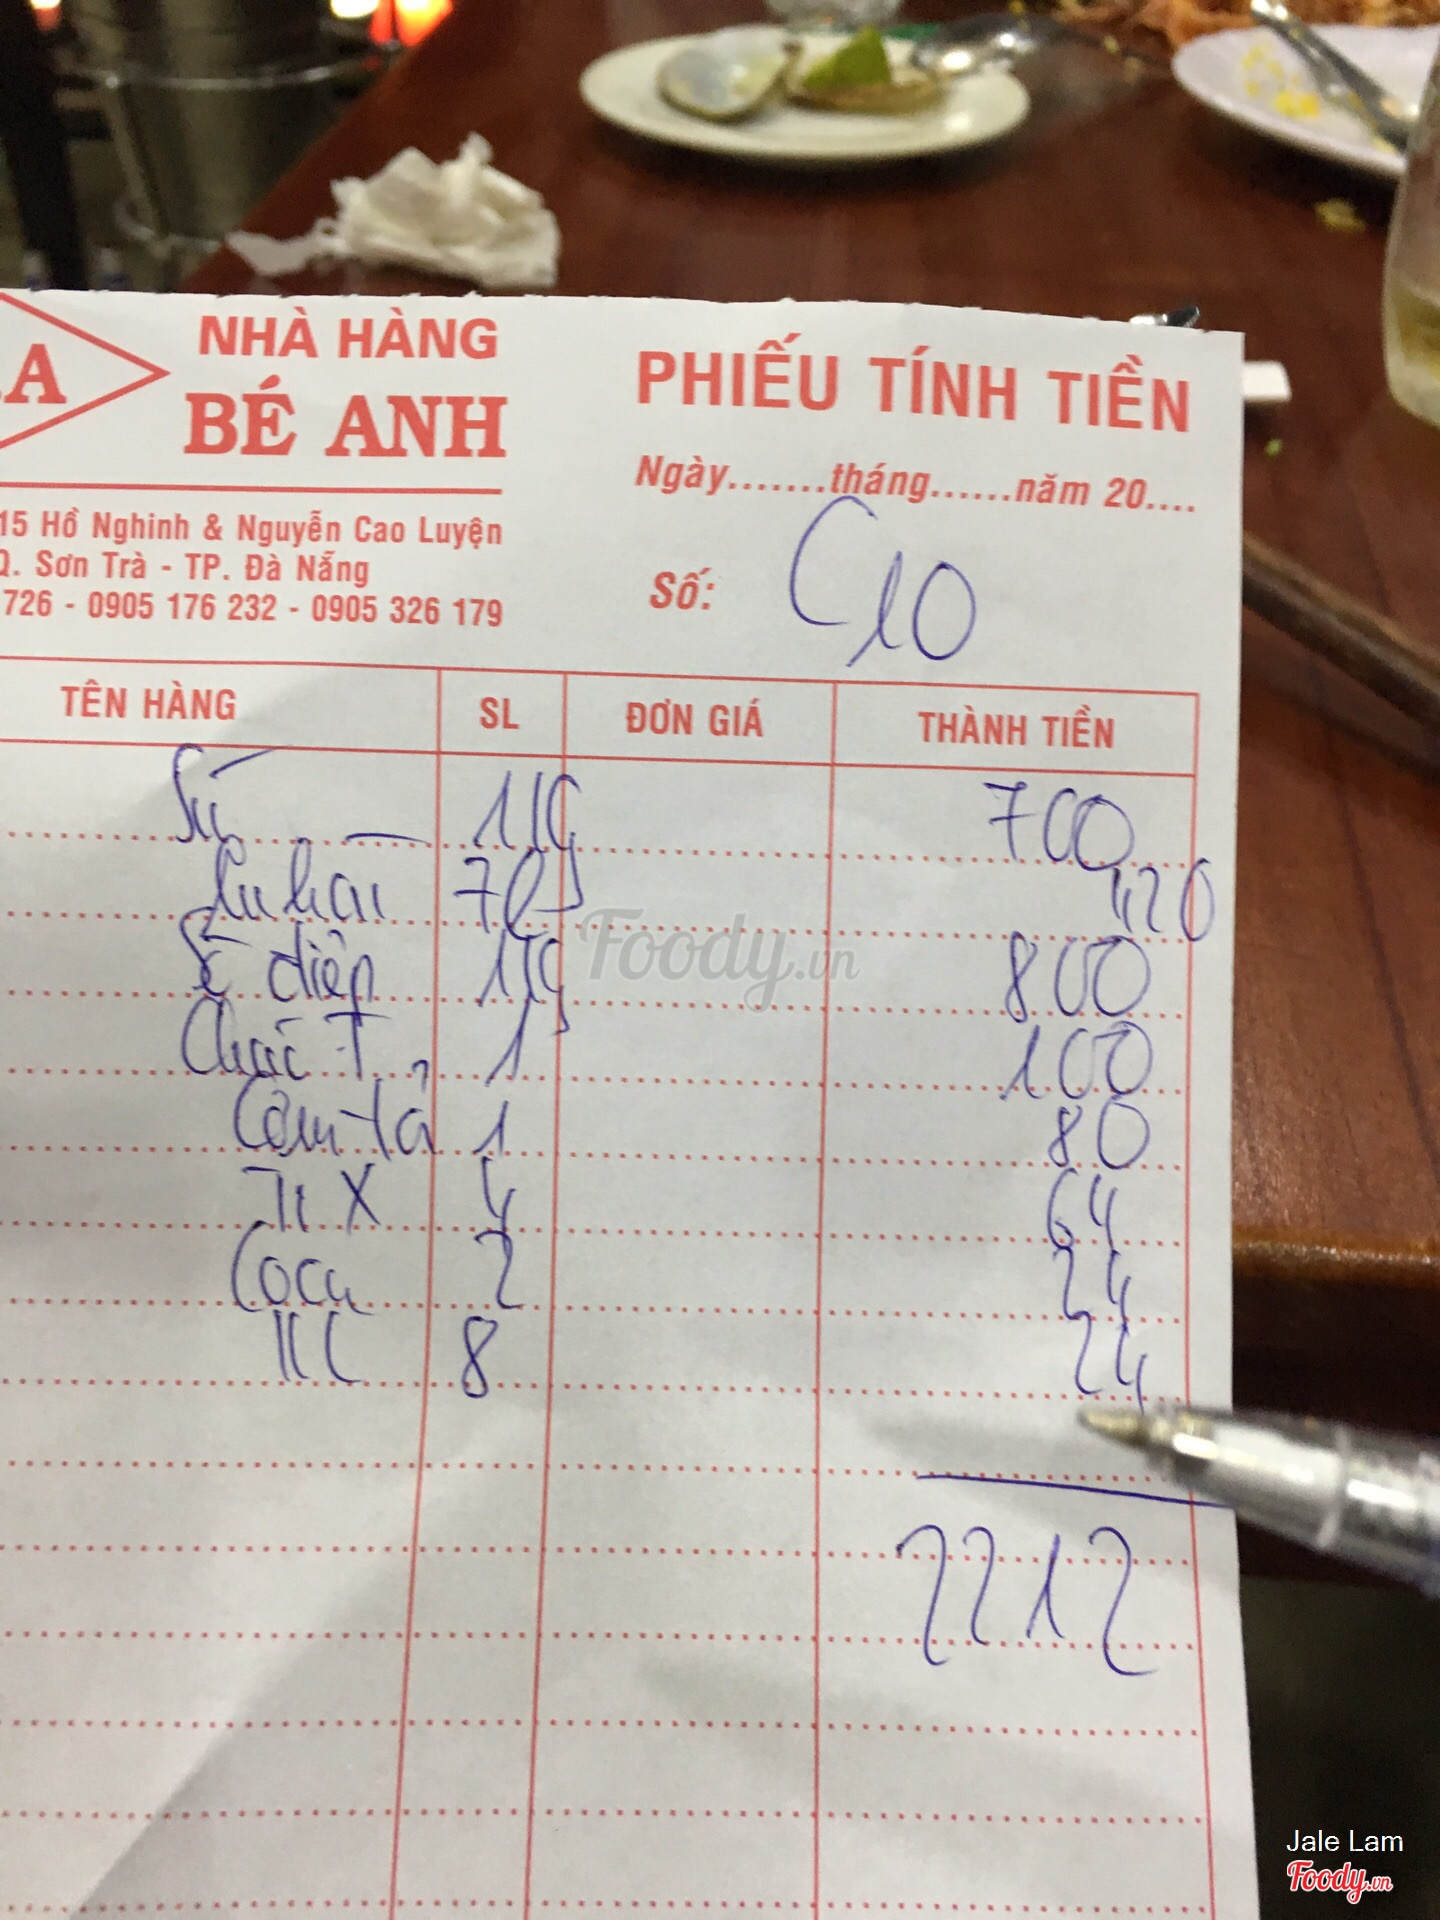 A
NHÀ HÀNG
BÉ ANH
15 Hồ Nghinh & Nguyễn Cao Luyện
Q. Sơn Trà - TP. Đà Nẵng
726 - 0905 176 232 - 0905 326 179
PHIẾU TÍNH TIỀN
Ngày.......tháng......năm 20....
Số: C10
TÊN HÀNG SL ĐƠN GIÁ THÀNH TIỀN
Sú 700
420
Sò điệp 800
1 100
1 80
TIX 4 64
Coca 2 24
KL 8 24
2212
Foody.vn
Jale Lam
Foody.vn